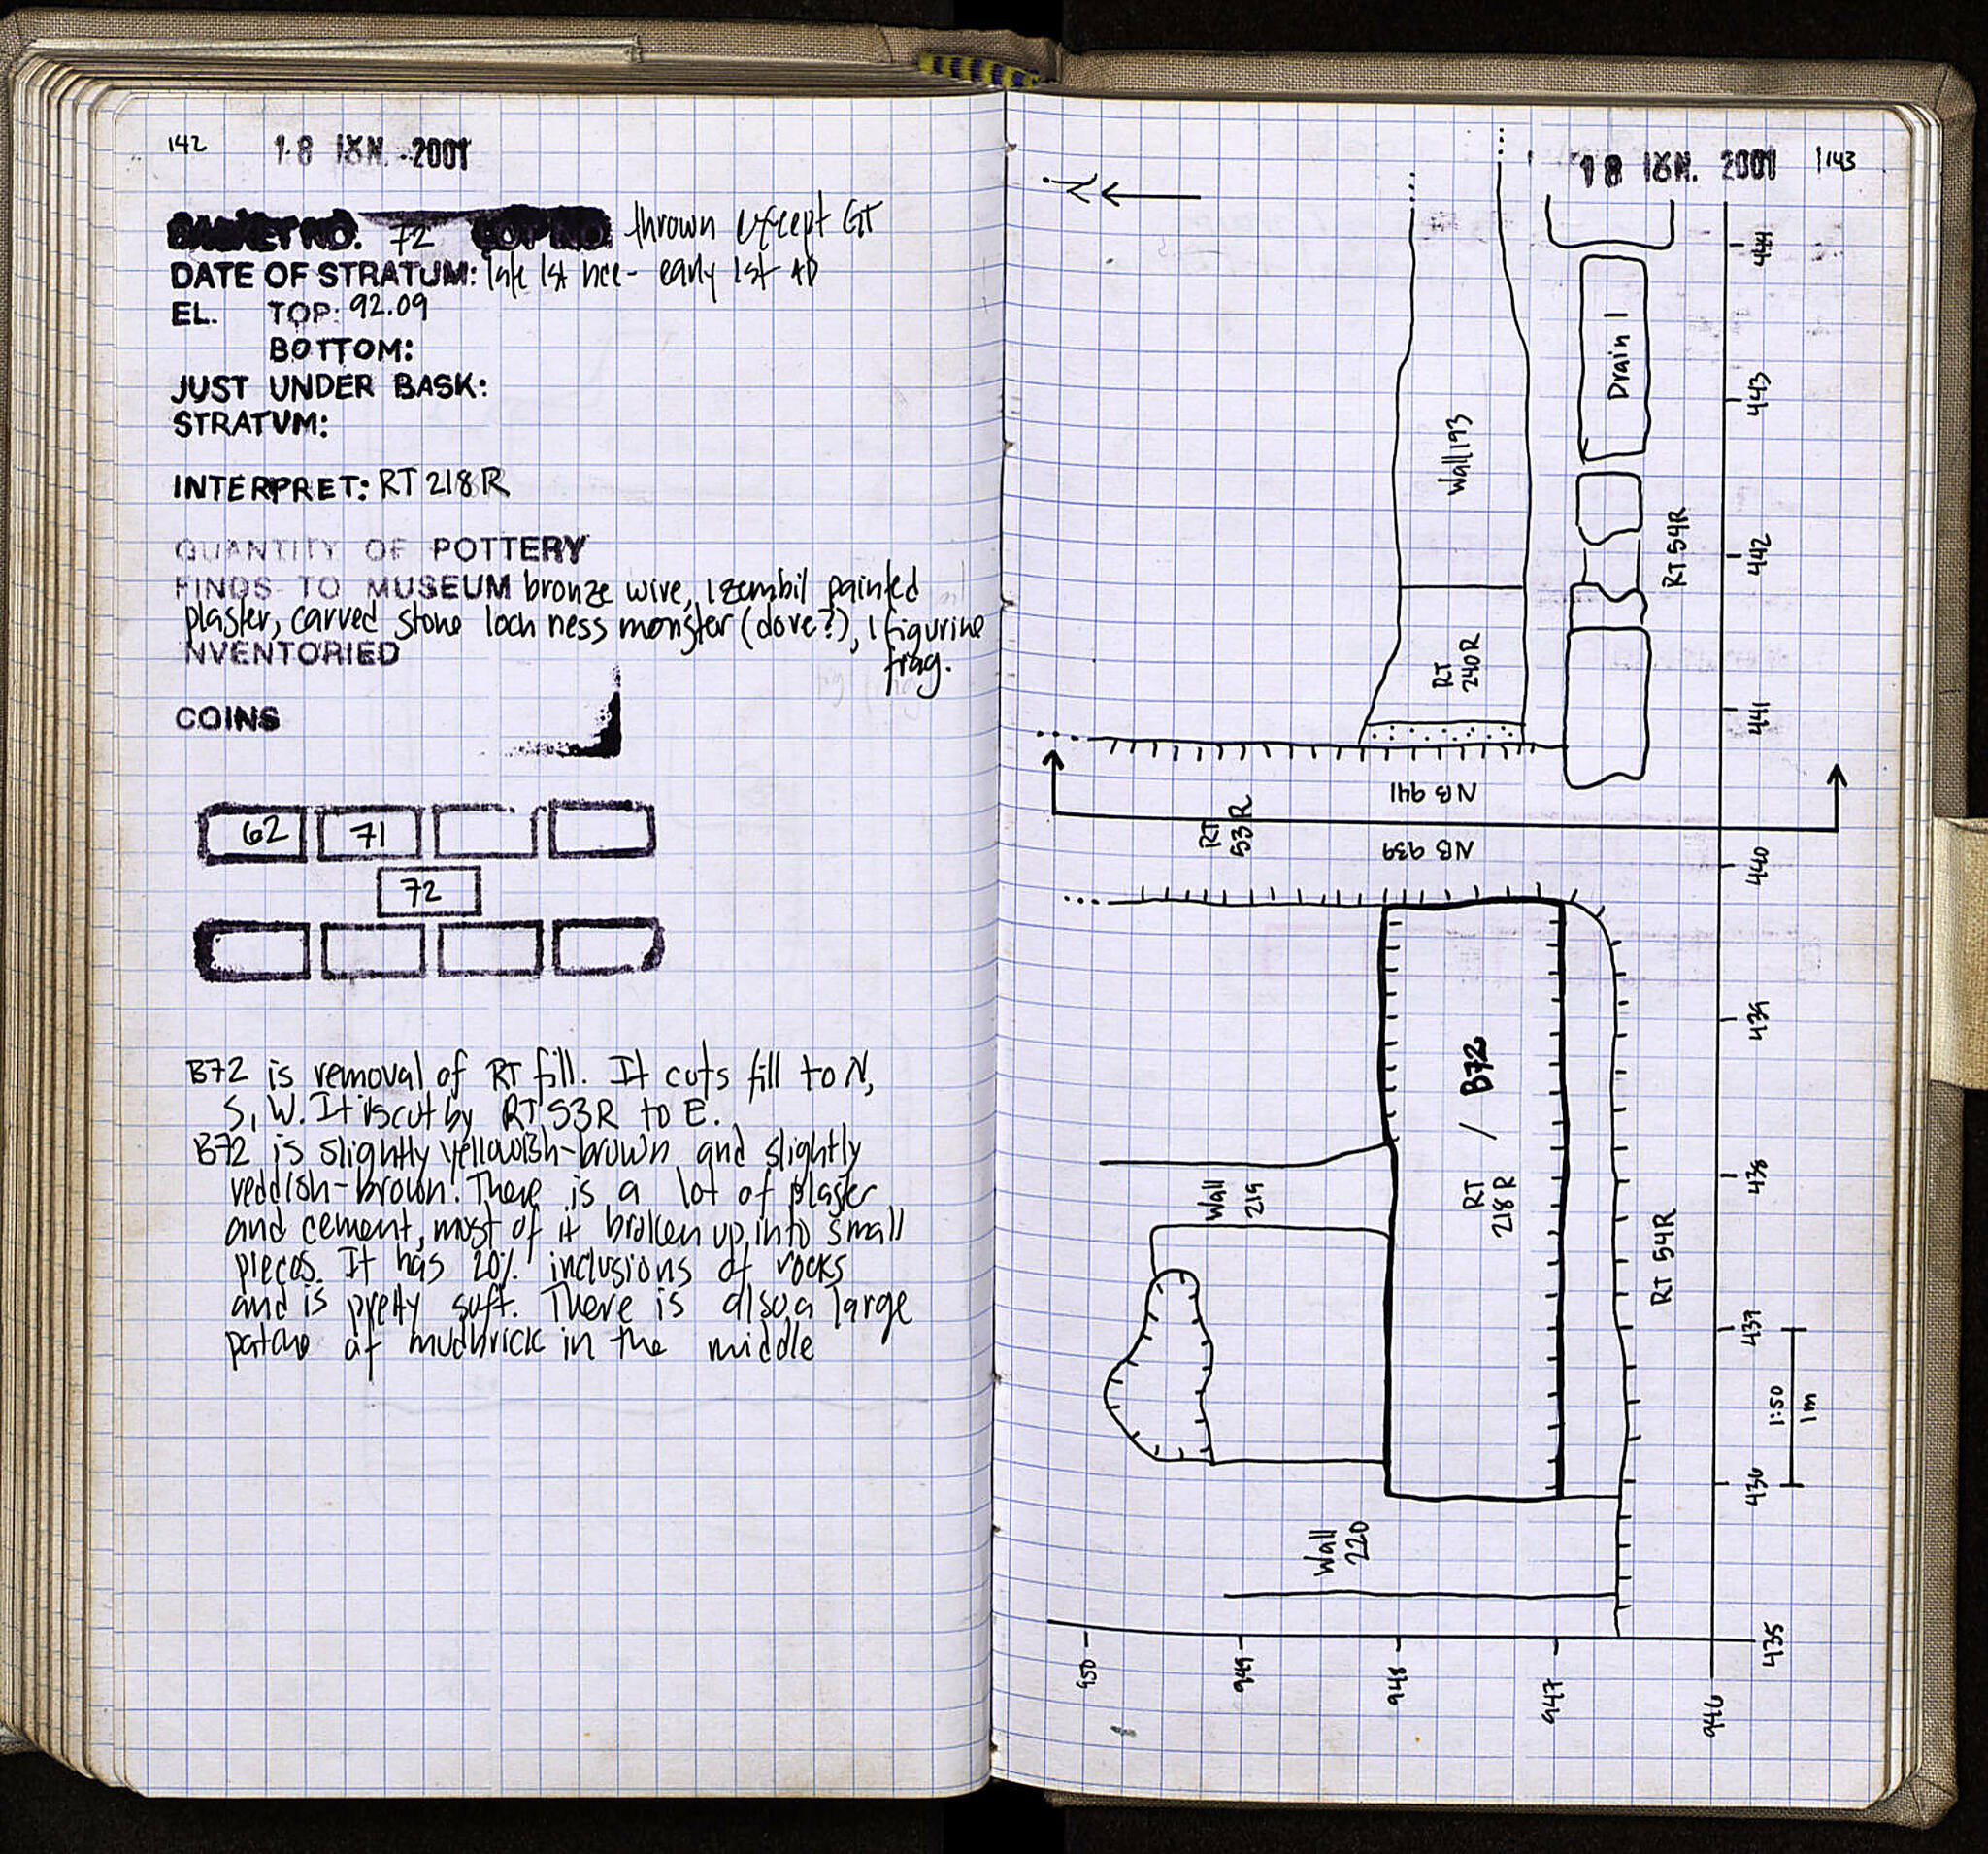 142 18 ΙΟΥΝ. 2001
BASKET NO. 72 LOT NO. thrown except GT
DATE OF STRATUM: late 1st bce - early 1st AD
EL. TOP: 92.09
BOTTOM:
JUST UNDER BASK:
STRATUM:
INTERPRET: RT 218R
QUANTITY OF POTTERY
FINDS TO MUSEUM bronze wire, 1 zembil painted
plaster, carved stone loch ness monster (dove?), 1 figurine
frag.
INVENTORIED
COINS
62 71
72
B72 is removal of RT fill. It cuts fill to N,
S, W. It is cut by RT 53R to E.
B72 is slightly yellowish-brown and slightly
reddish-brown. There is a lot of plaster
and cement, most of it broken up into small
pieces. It has 20% inclusions of rocks
and is pretty soft. There is also a large
patche of mudbrick in the middle
18 ΙΟΥΝ. 2001 143
N
444
Drain 1
443
Wall 193
442
RT 54R
RT
240R
441
NB 941
RT
53R
NB 939
440
439
RT
218R / B72
438
Wall
219
RT 54R
437
1:50
1m
436
Wall
220
435
950
949
948
947
946